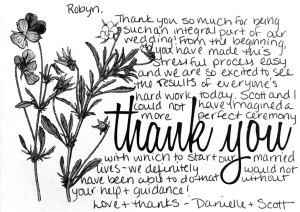 Robyn,
Thank you so much for being
such an integral part of our
wedding! From the beginning,
you have made this
stressful process easy
and we are so excited to see
the results of everyone's
hard work today. Scott and I
could not have imagined a
more perfect ceremony
thank you
with which to start our married
lives - we definitely would not
have been able to do that without
your help + guidance!
Love + thanks - Danielle + Scott